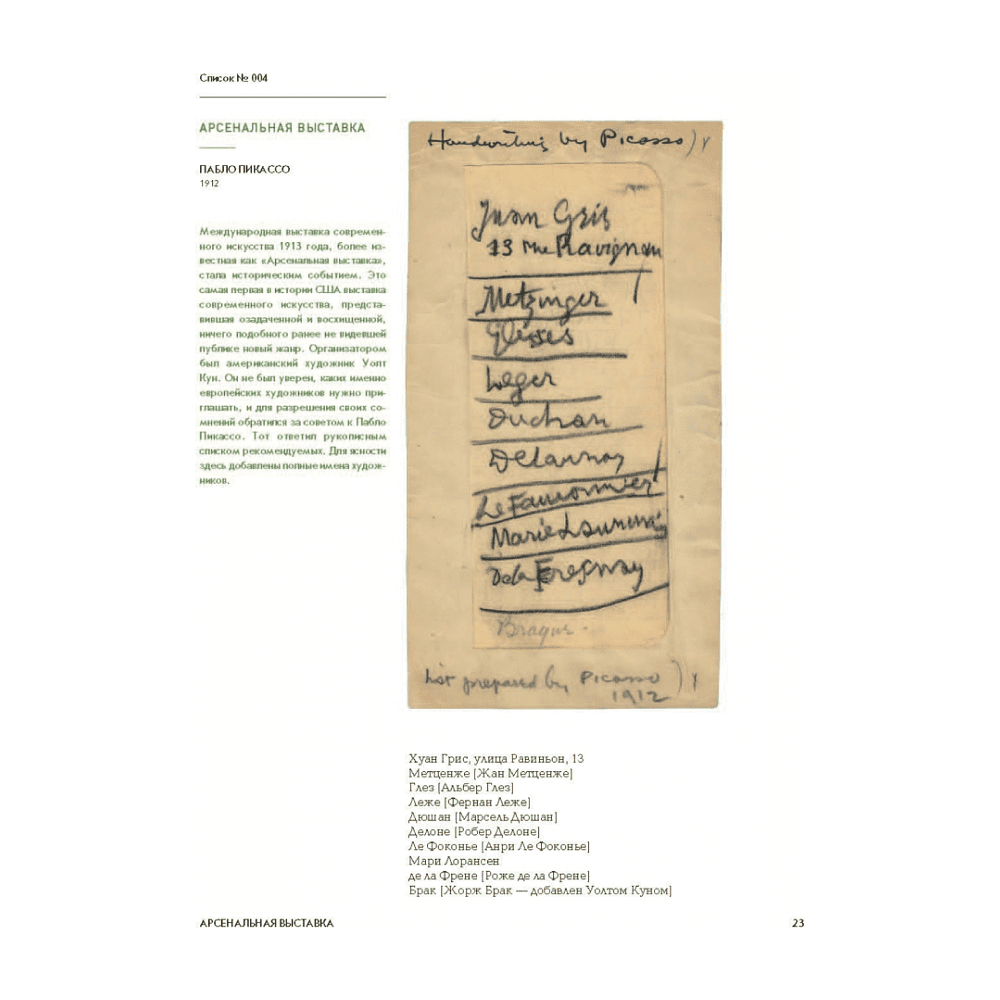 Список № 004
АРСЕНАЛЬНАЯ ВЫСТАВКА
ПАБЛО ПИКАССО
1912
Международная выставка современ-
ного искусства 1913 года, более из-
вестная как «Арсенальная выставка»,
стала историческим событием. Это
самая первая в истории США выставка
современного искусства, предста-
вившая озадаченной и восхищенной,
ничего подобного ранее не видевшей
публике новый жанр. Организатором
был американский художник Уолт
Кун. Он не был уверен, каких именно
европейских художников нужно при-
глашать, и для разрешения своих со-
мнений обратился за советом к Пабло
Пикассо. Тот ответил рукописным
списком рекомендуемых. Для ясности
здесь добавлены полные имена худож-
ников.
Handwriting by Picasso)
Juan Gris
13 rue Ravignan
Metzinger
Gleizes
Leger
Duchan
Delaunay
Le Fauconnier
Marie Laurencin
De la Fresnay
Braque
List prepared by Picasso)
1912
Хуан Грис, улица Равиньон, 13
Метценже [Жан Метценже]
Глез [Альбер Глез]
Леже [Фернан Леже]
Дюшан [Марсель Дюшан]
Делоне [Робер Делоне]
Ле Фоконье [Анри Ле Фоконье]
Мари Лорансен
де ла Френе [Роже де ла Френе]
Брак [Жорж Брак — добавлен Уолтом Куном]
АРСЕНАЛЬНАЯ ВЫСТАВКА 23